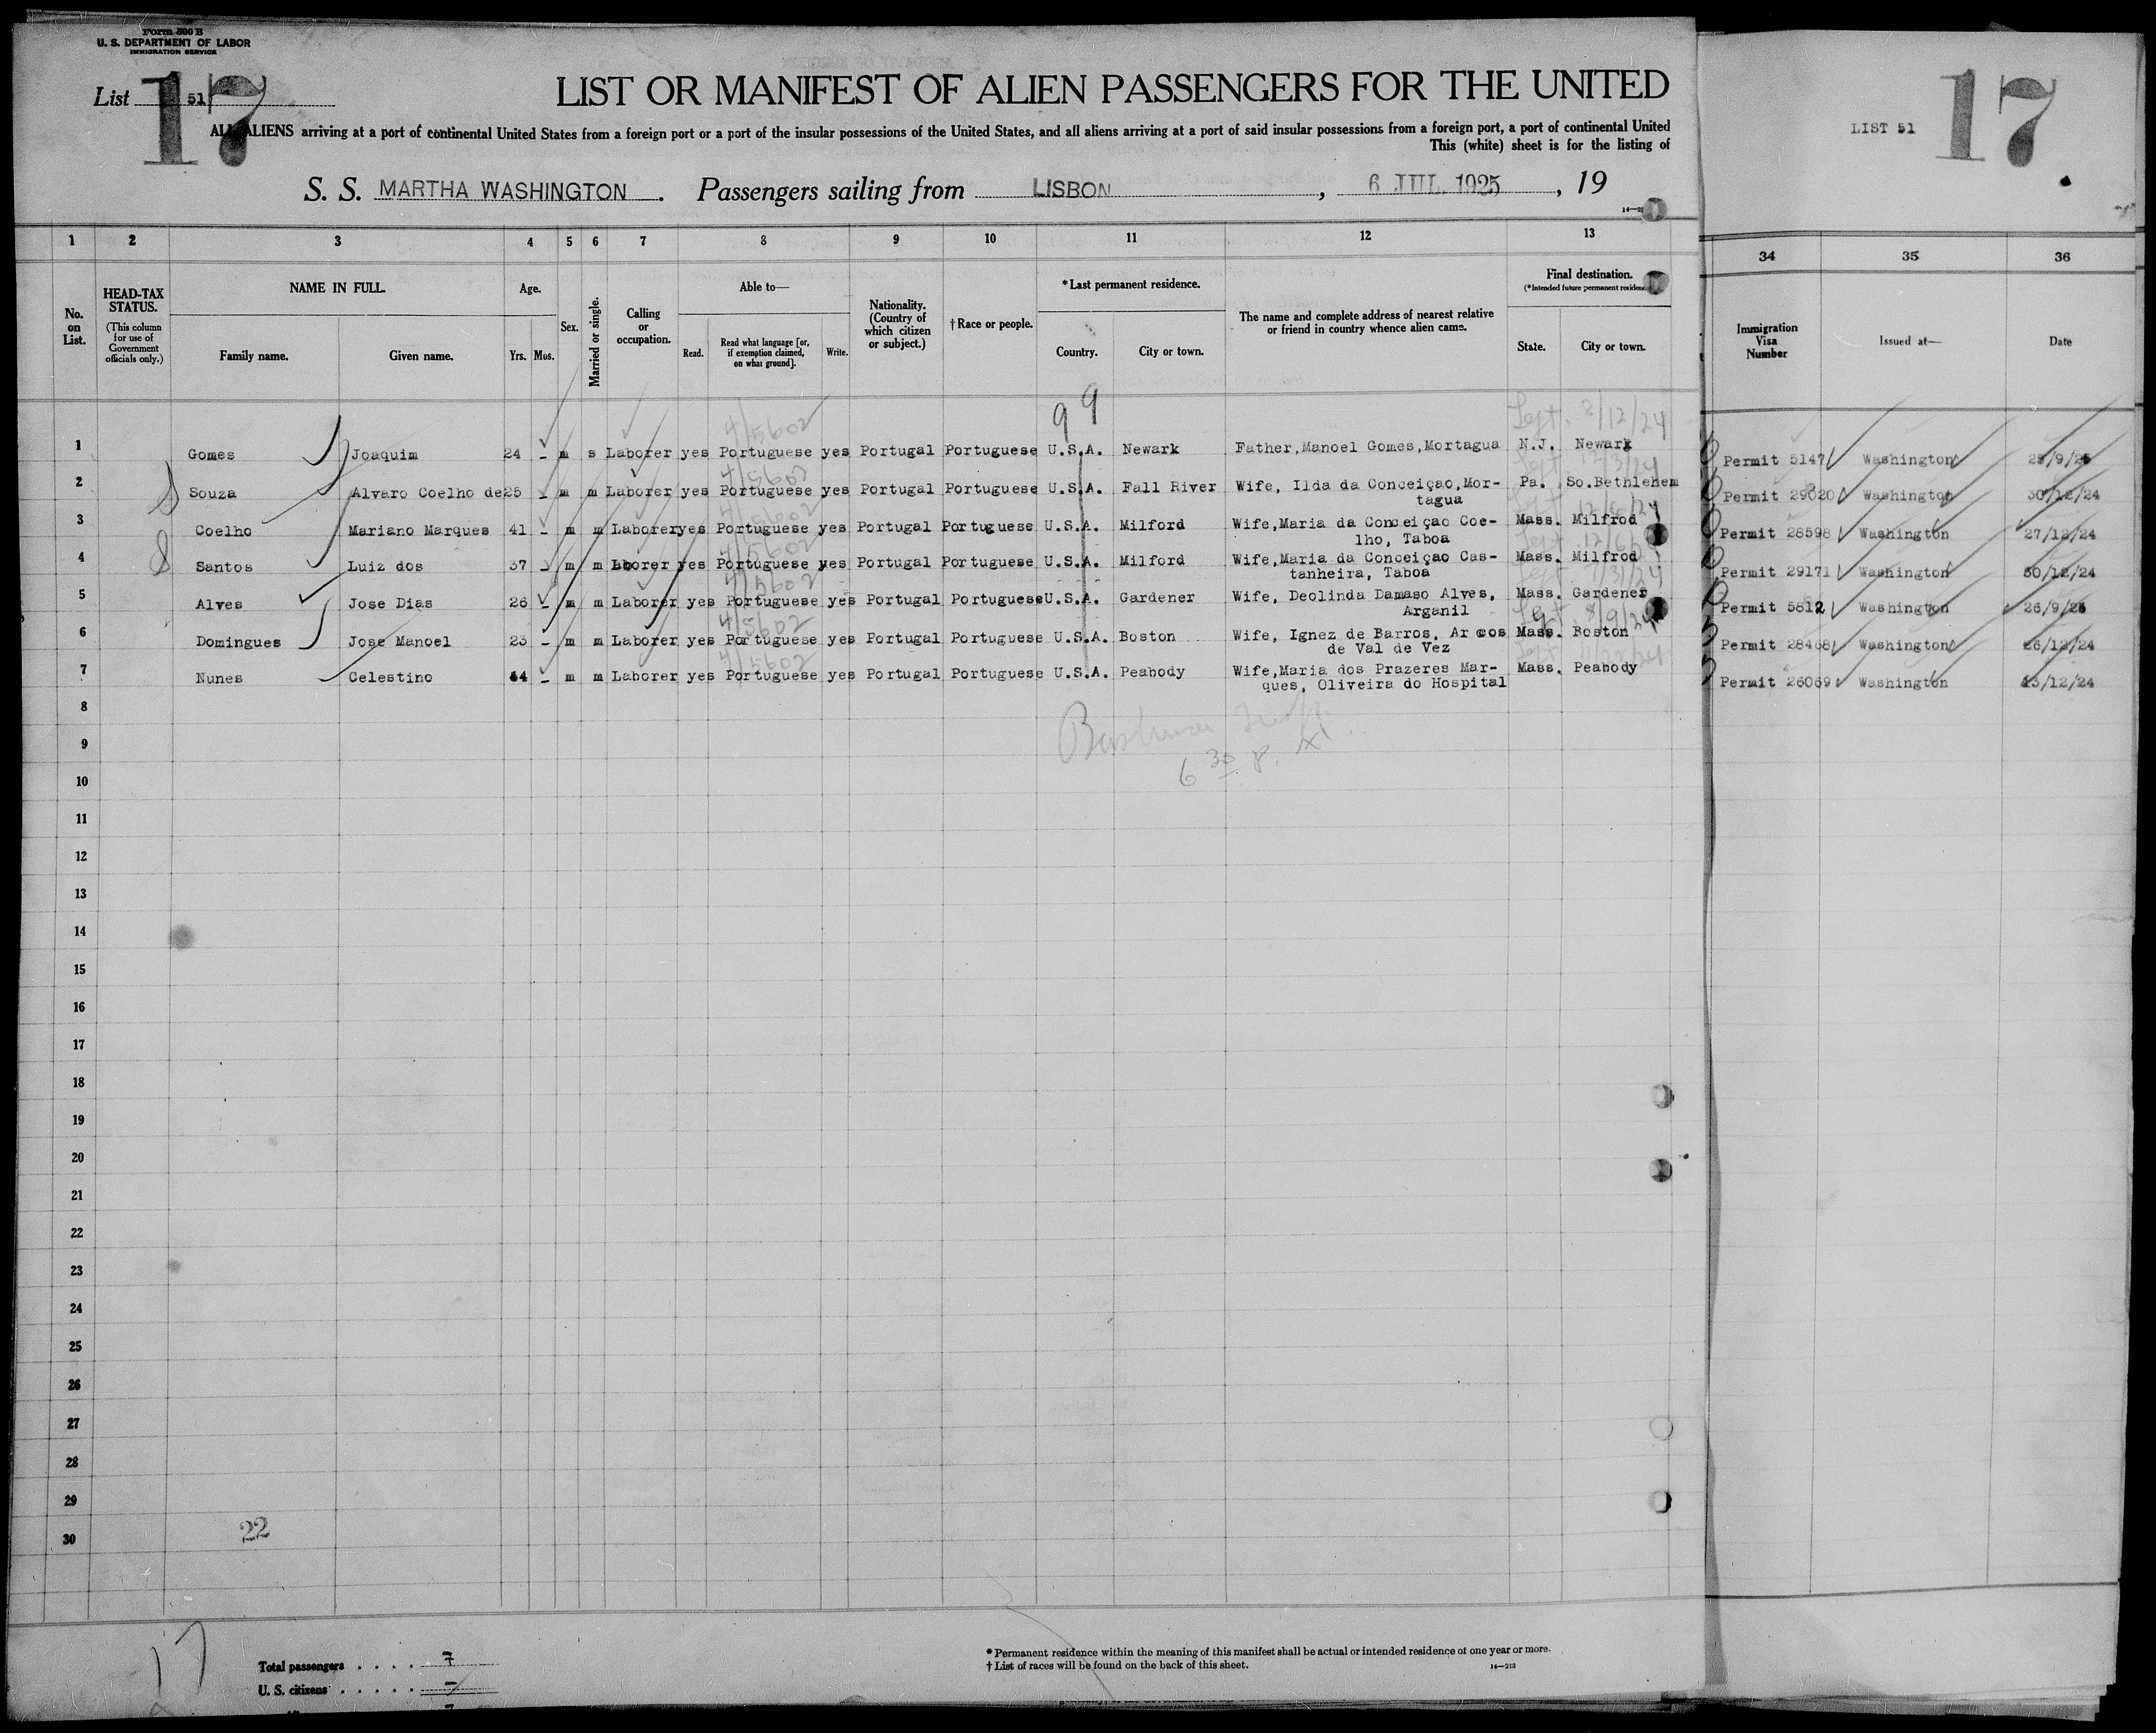 Form 500 B
U. S. DEPARTMENT OF LABOR
IMMIGRATION SERVICE
List 51
17
LIST OR MANIFEST OF ALIEN PASSENGERS FOR THE UNITED
ALL ALIENS arriving at a port of continental United States from a foreign port or a port of the insular possessions of the United States, and all aliens arriving at a port of said insular possessions from a foreign port, a port of continental United
This (white) sheet is for the listing of
S. S. MARTHA WASHINGTON. Passengers sailing from LISBON, 6 JUL 1925, 19
LIST 51 17
1 2 3 4 5 6 7 8 9 10 11 12 13 34 35 36
No. on List.
HEAD-TAX STATUS. (This column for use of Government officials only.)
NAME IN FULL. Family name. Given name.
Age. Yrs. Mos.
Sex.
Married or single.
Calling or occupation.
Able to— Read. Read what language [or, if exemption claimed, on what ground]. Write.
Nationality. (Country of which citizen or subject.)
† Race or people.
* Last permanent residence. Country. City or town.
The name and complete address of nearest relative or friend in country whence alien came.
Final destination. (* Intended future permanent residence) State. City or town.
Immigration Visa Number
Issued at—
Date
9 9
1 Gomes Joaquim 24 – m s Laborer yes Portuguese yes Portugal Portuguese U.S.A. Newark Father,Manoel Gomes,Mortagua N.J. Newark Permit 5147 Washington
2 Souza Alvaro Coelho de 25 – m m Laborer yes Portuguese yes Portugal Portuguese U.S.A. Fall River Wife, Ilda da Conceiçao,Mor-
tagua Pa. So.Bethlehem Permit 29020 Washington 30/12/24
3 Coelho Mariano Marques 41 – m m Laborer yes Portuguese yes Portugal Portuguese U.S.A. Milford Wife,Maria da Conceiçao Coe-
lho, Taboa Mass. Milfrod Permit 28598 Washington 27/12/24
4 Santos Luiz dos 37 – m m Laborer yes Portuguese yes Portugal Portuguese U.S.A. Milford Wife,Maria da Conceiçao Cas-
tanheira, Taboa Mass. Milfrod Permit 29171 Washington 30/12/24
5 Alves Jose Dias 26 – m m Laborer yes Portuguese yes Portugal Portuguese U.S.A. Gardener Wife, Deolinda Damaso Alves,
Arganil Mass. Gardener Permit 5812 Washington
6 Domingues Jose Manoel 23 – m m Laborer yes Portuguese yes Portugal Portuguese U.S.A. Boston Wife, Ignez de Barros, Arcos
de Val de Vez Mass. Boston Permit 28468 Washington 26/12/24
7 Nunes Celestino 44 – m m Laborer yes Portuguese yes Portugal Portuguese U.S.A. Peabody Wife,Maria dos Prazeres Mar-
ques, Oliveira do Hospital Mass. Peabody Permit 26069 Washington 13/12/24
8
9
10
11
12
13
14
15
16
17
18
19
20
21
22
23
24
25
26
27
28
29
30
22
17
Total passengers . . . . 7
U. S. citizens . . . . . –
* Permanent residence within the meaning of this manifest shall be actual or intended residence of one year or more.
† List of races will be found on the back of this sheet.
14—213